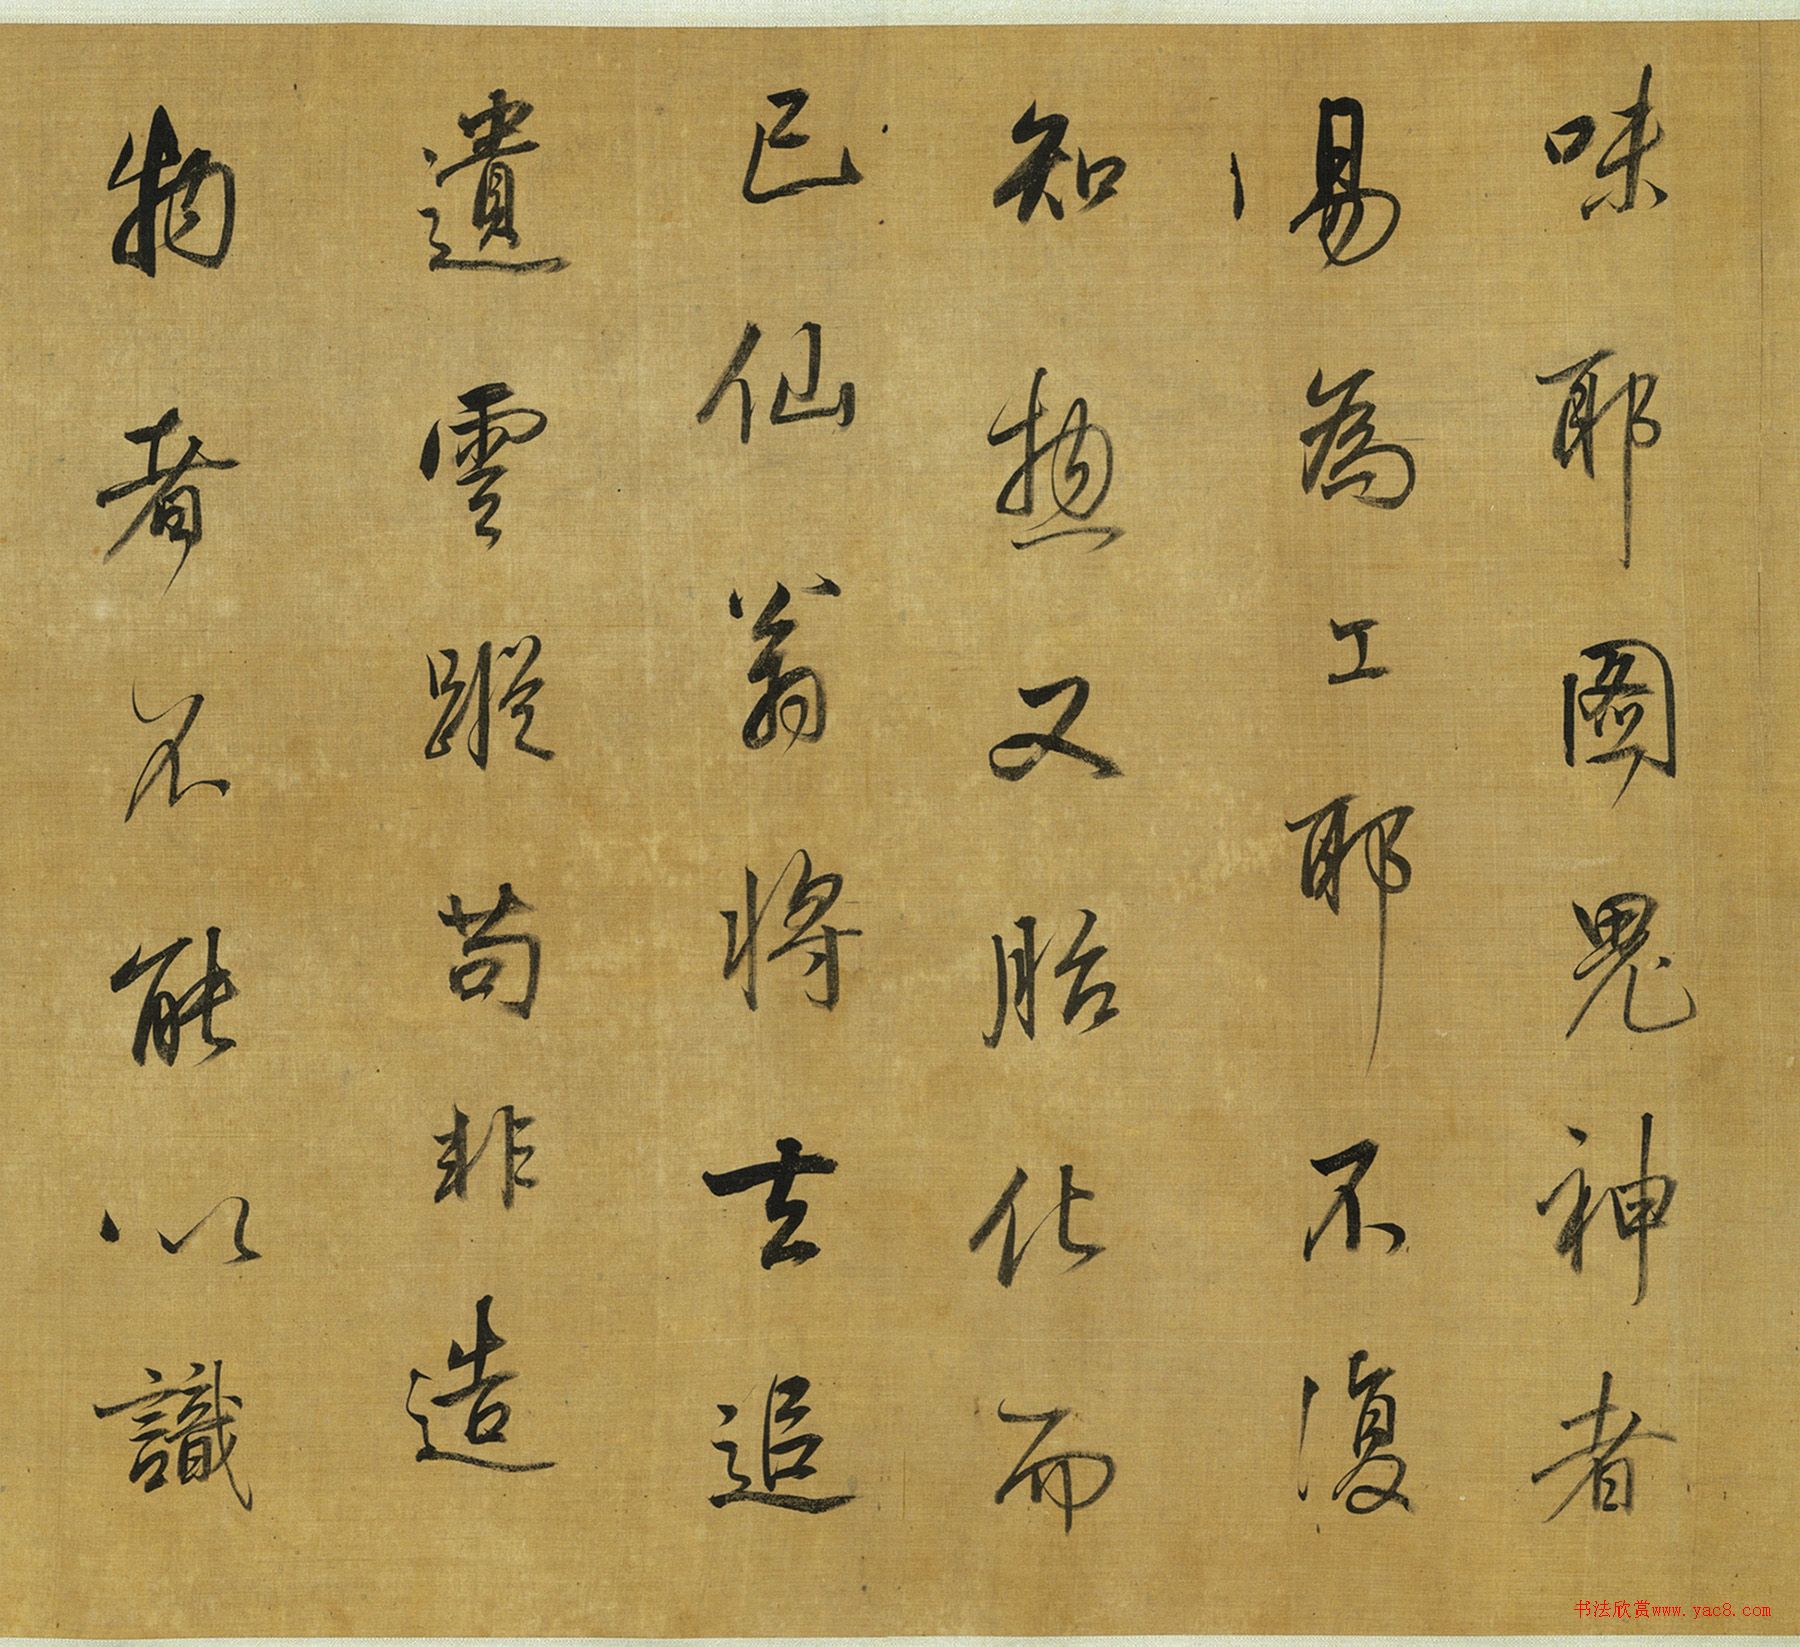 味耶圖鬼神者
易為工耶不復
知惣又胎化而
已仙翁將去追
遺雲蹤苟非造
物者不能以識
书法欣赏www.yac8.com